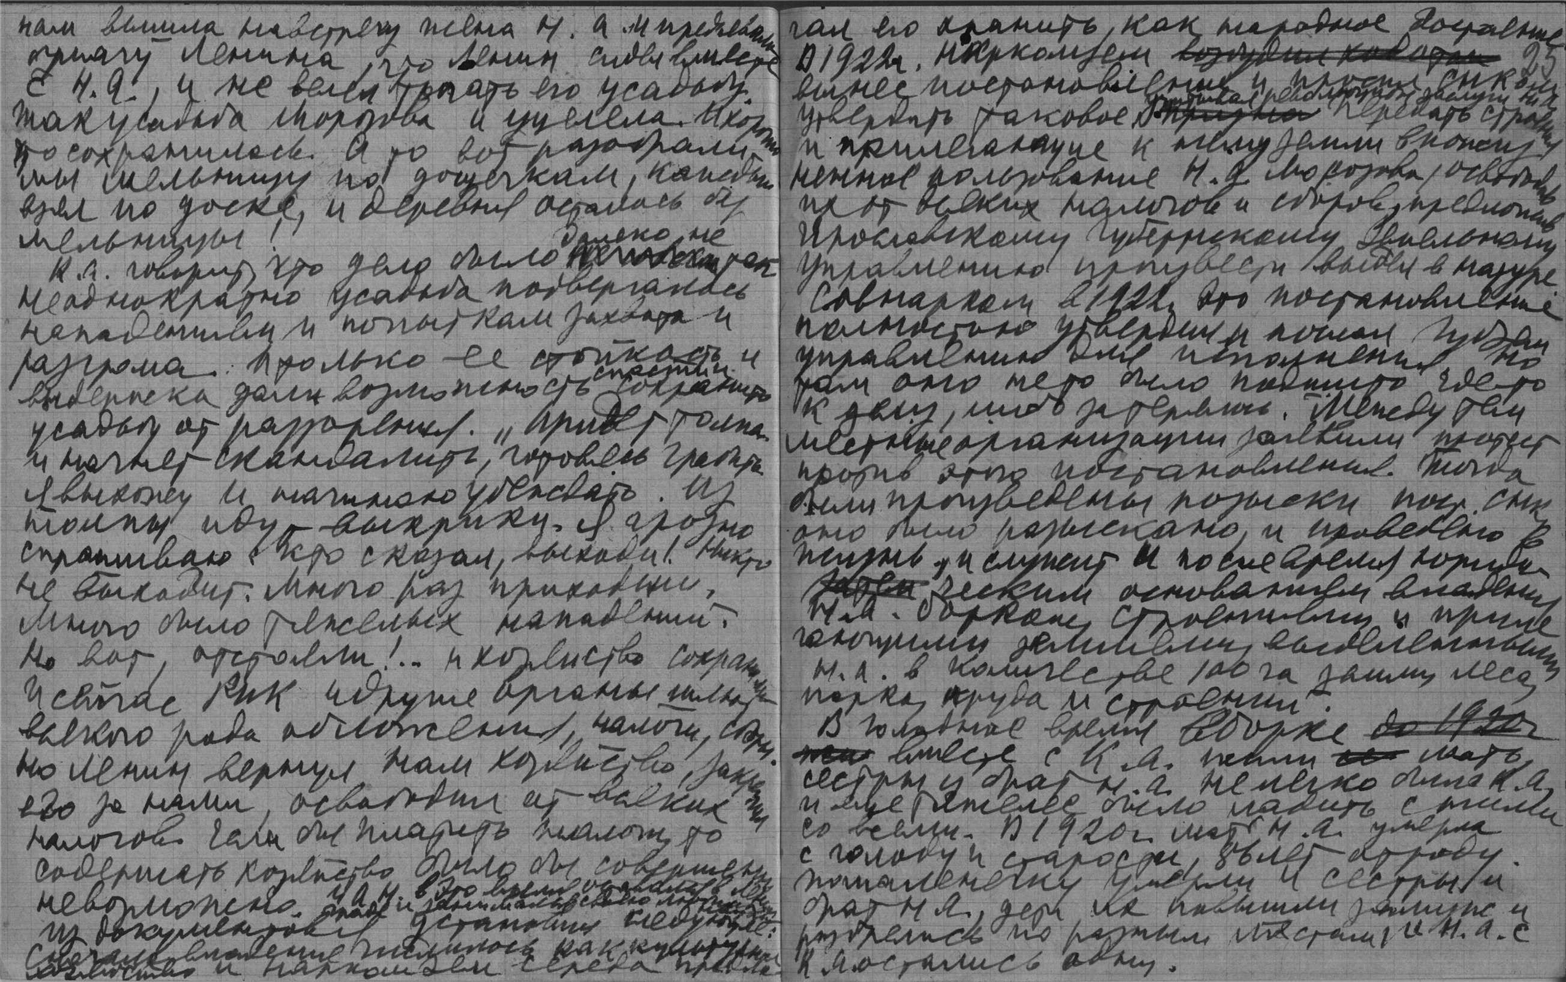 нам вышла навстречу жена Н. А. и предъявила
бумагу Ленина, что Ленин сидел вместе
с Н.А., и не велел трогать его усадьбу.
Так усадьба Морозова и уцелела. И хорошо
что сохранилась. А то вот разобрали
мы мельницу по дощечкам, каждый
взял по доске, и деревня осталась без
мельницы.
К.А. говорит, что дело было далеко не так
неоднократно усадьба подвергалась
нападениям и попыткам захвата и
разгрома. И только ее стойкость и
выдержка дали возможность спасти и сохранить
усадьбу от разорения. "Придет толпа
и начнет скандалить, готовясь грабить
Я выхожу и начинаю убеждать. Из
толпы идут выкрики. Я грозно
спрашиваю: кто сказал, выходи! Никто
не выходит. Много раз приходили.
Много было тяжелых нападений.
Но вот, отстояли!.. и хозяйство сохранили
И сейчас РИК и другие органы шлют
всякого рода обложения, налоги, сборы.
но Ленин вернул нам хозяйство, закрепил
его за нами, освободил от всяких
налогов. Если бы платить налоги, то
содержать хозяйство было бы совершенно
невозможно. Н.А. в это время оставался в
и занимался своею
Из документов я установил следующее:
Сначала владение числилось как культурное
хозяйство и Наркомзем
гал его хранить, как народное достояние
В 1922г. Наркомзем
вынес постановление и просил СНК
утвердить таковое передать строения
и прилегающие к нему земли в пожиз
ненное пользование Н.А. Морозова, освободив
их от всяких налогов и сборов, предложив
Ярославскому Губернскому Земельному
Управлению произвести выдел в натуре
Совнарком в 1922г. это постановление
полностью утвердил и послал Губзем
управлению для исполнения. Но
там оно не то было подшито где-то
к делу, либо затерялось. Между тем
местные организации заявили протест
против этого постановления. Тогда
были произведены розыски пост. СНК
оно было разыскано, и проведено в
жизнь, и служит и по сие время юриди-
ческим основанием владения
Н.А. Борком, строениями и приле
гающими землями, выделенными
Н.А. в количестве 100 га земли, леса,
парка, пруда и строений.
В голодное время в Борке до 1920г
вместе с К.А. жили мать,
сестры и брат Н.А. Нелегко было К.А.
и еще тяжелее было ладить с ними
со всеми. В 1920г. мать Н.А. умерла
с голоду и старости, 86 лет отроду.
Помаленечку умерли и сестры и
брат Н.А., дети их повышли замуж и
разбрелись по разным местам, и Н.А. с
К.А. остались одни.